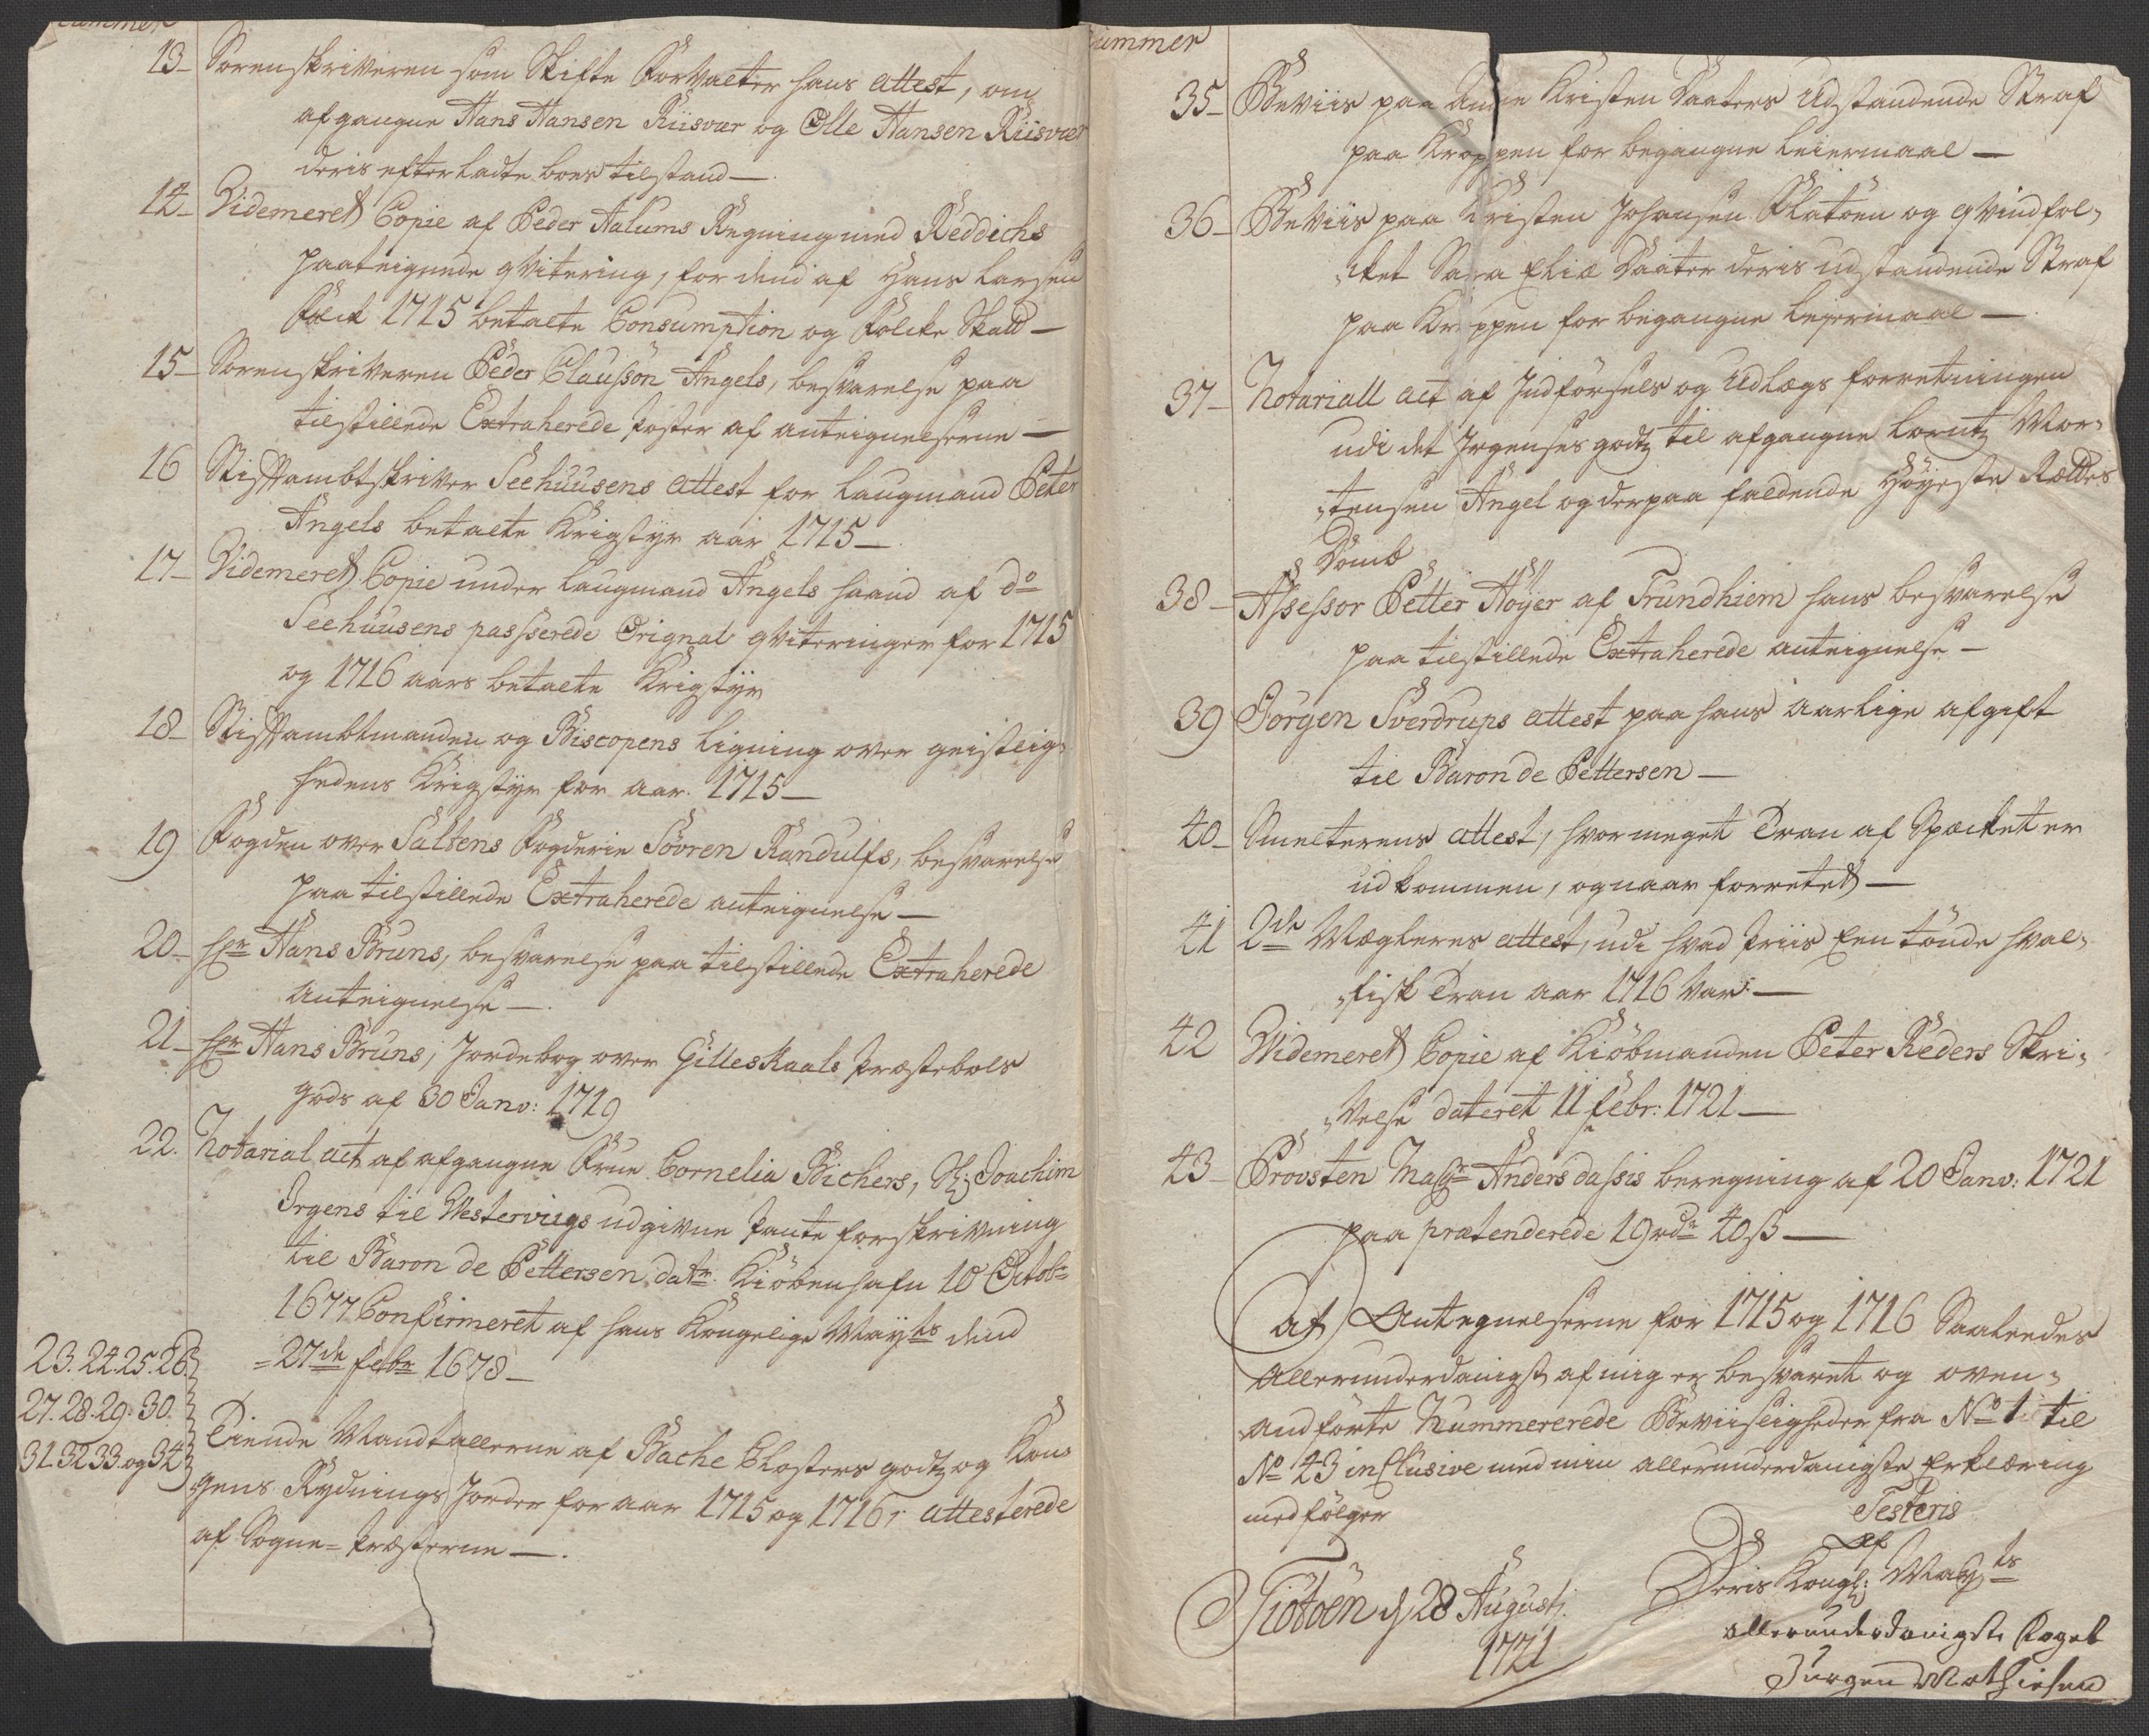 Nummer
13_ Sorenskriveren som Skifte Forvalter hans attest, om
afgangne Hans Hansen Riisvær og Olle Hansen Riisvær
deris efterladte boes tilstand_
14_ Videmeret Copie af Peder Aalums Regning med Reddichs
paateignede qvitering, for dend af Hans Larsen
1715 betalte Consumption og Folcke Skatt_
15_ Sorenskriveren Peder Clausson Angels, besvarelse paa
tilstillede Extraherede Poster af anteignelserne_
16 Stiftambtskriver Seehuusens attest for Laugmand Peter
Angels betalte Krigstyr aar 1715_
17_ Videmeret Copie under Laugmand Angels haand af do
Seehuusens passerede Orignal qviteringer for 1715
og 1716 aars betalte Krigstyr
18_ Stiftambtmanden og Biscopens ligning over geistlig-
hedens Krigstyr for aar. 1715_
19 Fogden over Saltens Fogderie Sövren Randulfs, besvarelse
paa tilstillede Extraherede anteignelse_
20_ Hr Hans Bruns, besvarelse paa tilstillede Extraherede
Anteignelse_
21_ Hr Hans Bruns, Jordebog over Gilleskaals Præstebols
gods af 30 Janv: 1719
22. Notarial act af afgangne Frue Cornelia Bichers, Sl: Joachim
Irgens til Westervigs udgivne Pante forskrivning
til Baron de Pettersen datr. Kiöbenhafn 10 Octobr
1677 Confirmeret af hans Kongelige Mayts dend
=27de febr 1678_
23. 24. 25. 26.
27. 28. 29. 30.
31. 32 33. og 34
Tiende Mandtallerne af Bache Closters godtz og Kon-
gens Rydnings Jorder for aar 1715 og 1716, attesterede
af Sogne=Præsterne_.
Nummer
35_ Beviis paa Anne Kristen Daaters Udstandende Straf
paa Kroppen for begangne Leiermaal_
36_ Beviis paa Kristen Johansen Flatöen og qvindfol-
cket Sara Eliæ Daater deris udstandende Straf
paa Kroppen for begangne Leiermaal_
37_ Notariall act af Indförsels og Udlægs forretningen
udi det Irgenses godtz til afgangne Lorntz Mor-
tensen Angel og derpaa faldende Höyeste Rættes
Domb
38_ Assessor Petter Höyer af Trundhiem hans besvarelse
paa tilstillede Extraherede anteignelse_
39 Jörgen Sverdrups attest paa hans aarlige afgift
til Baron de Pettersen_
40_ Smelterens attest, hvor meget Tran af Specket er
udkommen, og naar forretet_
41 2de Mægleres attest, udi hvad Priis Een tönde hval-
fisk Tran aar 1716 var:_
42 Widemeret Copie af Kiöbmanden Peter Röders Skri-
velse dateret 11 febr: 1721_
43_ Provsten Magr Anders dassis beregning af 20 Janv: 1721
paa prætenderede 19 rdr 40 ß_
At Antegnelserne for 1715 og 1716 Saaleedes
Allerunderdanigst af mig er besvaret og oven-
andförte Nummererede Beviisligheder fra No 1 til
No 43 inclusive med min allerunderdanigste Erklæring
medfölger
Testeris
Af
Tiötöen d 28 Augusti.
1721
Deris Kongl: Mayts
allerunderdanigste Foget
Jürgen Mathiesen